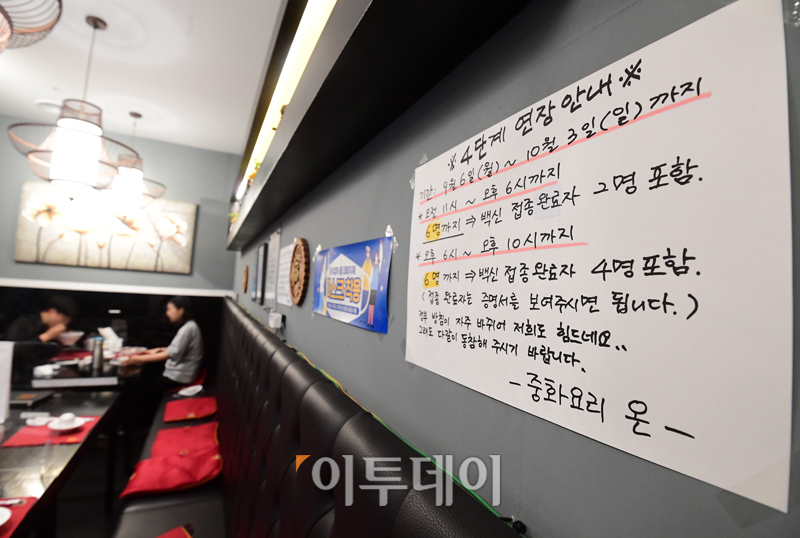 ※ 4단계 연장 안내 ※
기간: 9월 6일(월) ~ 10월 3일(일) 까지
* 오전 11시 ~ 오후 6시까지
6명까지 ⇒ 백신 접종완료자 2명 포함.
* 오후 6시 ~ 오후 10시까지
6명 까지 ⇒ 백신접종완료자 4명 포함.
( 접종 완료자는 증명서를 보여주시면 됩니다. )
정부 방침이 자주 바뀌어 저희도 힘드네요..
그래도 다같이 동참해 주시기 바랍니다.
- 중화요리 온 -
마스크착용
이투데이